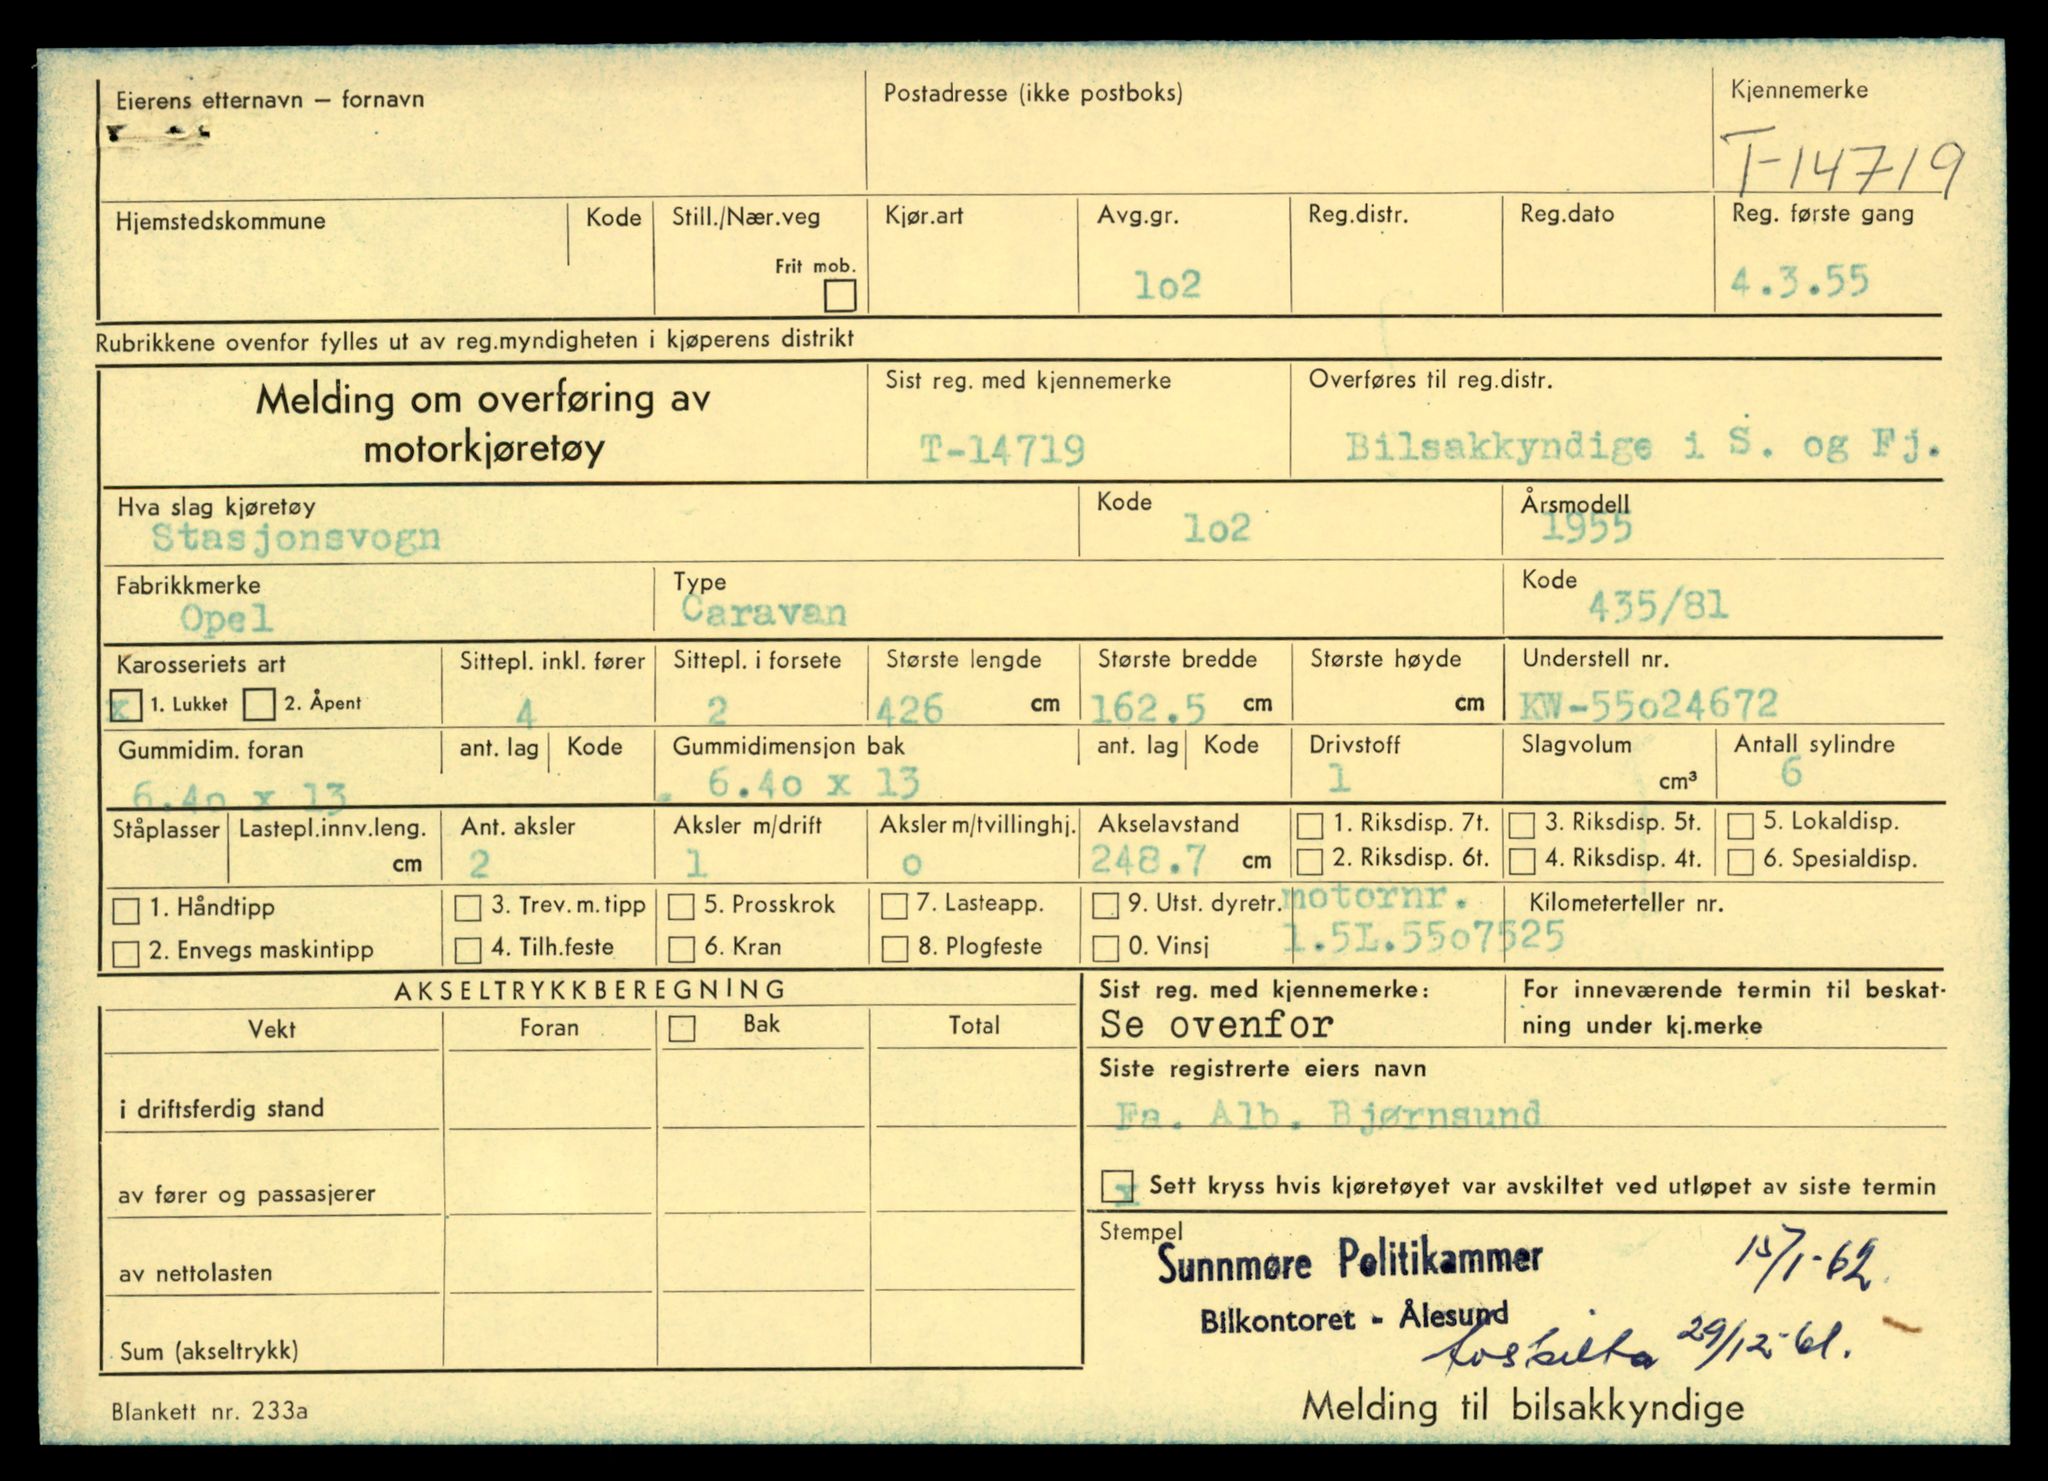 Eierens etternavn — fornavn
Postadresse (ikke postboks)
Kjennemerke
T-14719
Hjemstedskommune
Kode
Still./Nær.veg
Frit mob.
Kjør.art
Avg.gr.
1o2
Reg.distr.
Reg.dato
Reg. første gang
4.3.55
Rubrikkene ovenfor fylles ut av reg.myndigheten i kjøperens distrikt
Melding om overføring av
motorkjøretøy
Sist reg. med kjennemerke
T-14719
Overføres til reg.distr.
Bilsakkyndige i S. og Fj.
Hva slag kjøretøy
Stasjonsvogn
Kode
1o2
Årsmodell
1955
Fabrikkmerke
Opel
Type
Caravan
Kode
435/81
Karosseriets art
x 1. Lukket 2. Åpent
Sittepl. inkl. fører
4
Sittepl. i forsete
2
Største lengde
426 cm
Største bredde
162.5 cm
Største høyde
cm
Understell nr.
KW-55o24672
Gummidim. foran
6.4o x 13
ant. lag
Kode
Gummidimensjon bak
. 6.4o x 13
ant. lag
Kode
Drivstoff
1
Slagvolum
cm³
Antall sylindre
6
Ståplasser
Lastepl.innv.leng.
cm
Ant. aksler
2
Aksler m/drift
1
Aksler m/tvillinghj.
o
Akselavstand
248.7 cm
1. Riksdisp. 7t. 3. Riksdisp. 5t. 5. Lokaldisp.
2. Riksdisp. 6t. 4. Riksdisp. 4t. 6. Spesialdisp.
1. Håndtipp 3. Trev. m. tipp 5. Prosskrok 7. Lasteapp. 9. Utst. dyretr.
2. Envegs maskintipp 4. Tilh.feste 6. Kran 8. Plogfeste 0. Vinsj
motornr.
1.5L.55o7525
Kilometerteller nr.
AKSELTRYKKBEREGNING
Vekt Foran Bak Total
i driftsferdig stand
av fører og passasjerer
av nettolasten
Sum (akseltrykk)
Sist reg. med kjennemerke:
Se ovenfor
For inneværende termin til beskat-
ning under kj.merke
Siste registrerte eiers navn
Fa. Alb. Bjørnsund
x Sett kryss hvis kjøretøyet var avskiltet ved utløpet av siste termin
Stempel
Sunnmøre Politikammer
15/1-62
Bilkontoret - Ålesund
29/12-61.
Blankett nr. 233a
Melding til bilsakkyndige